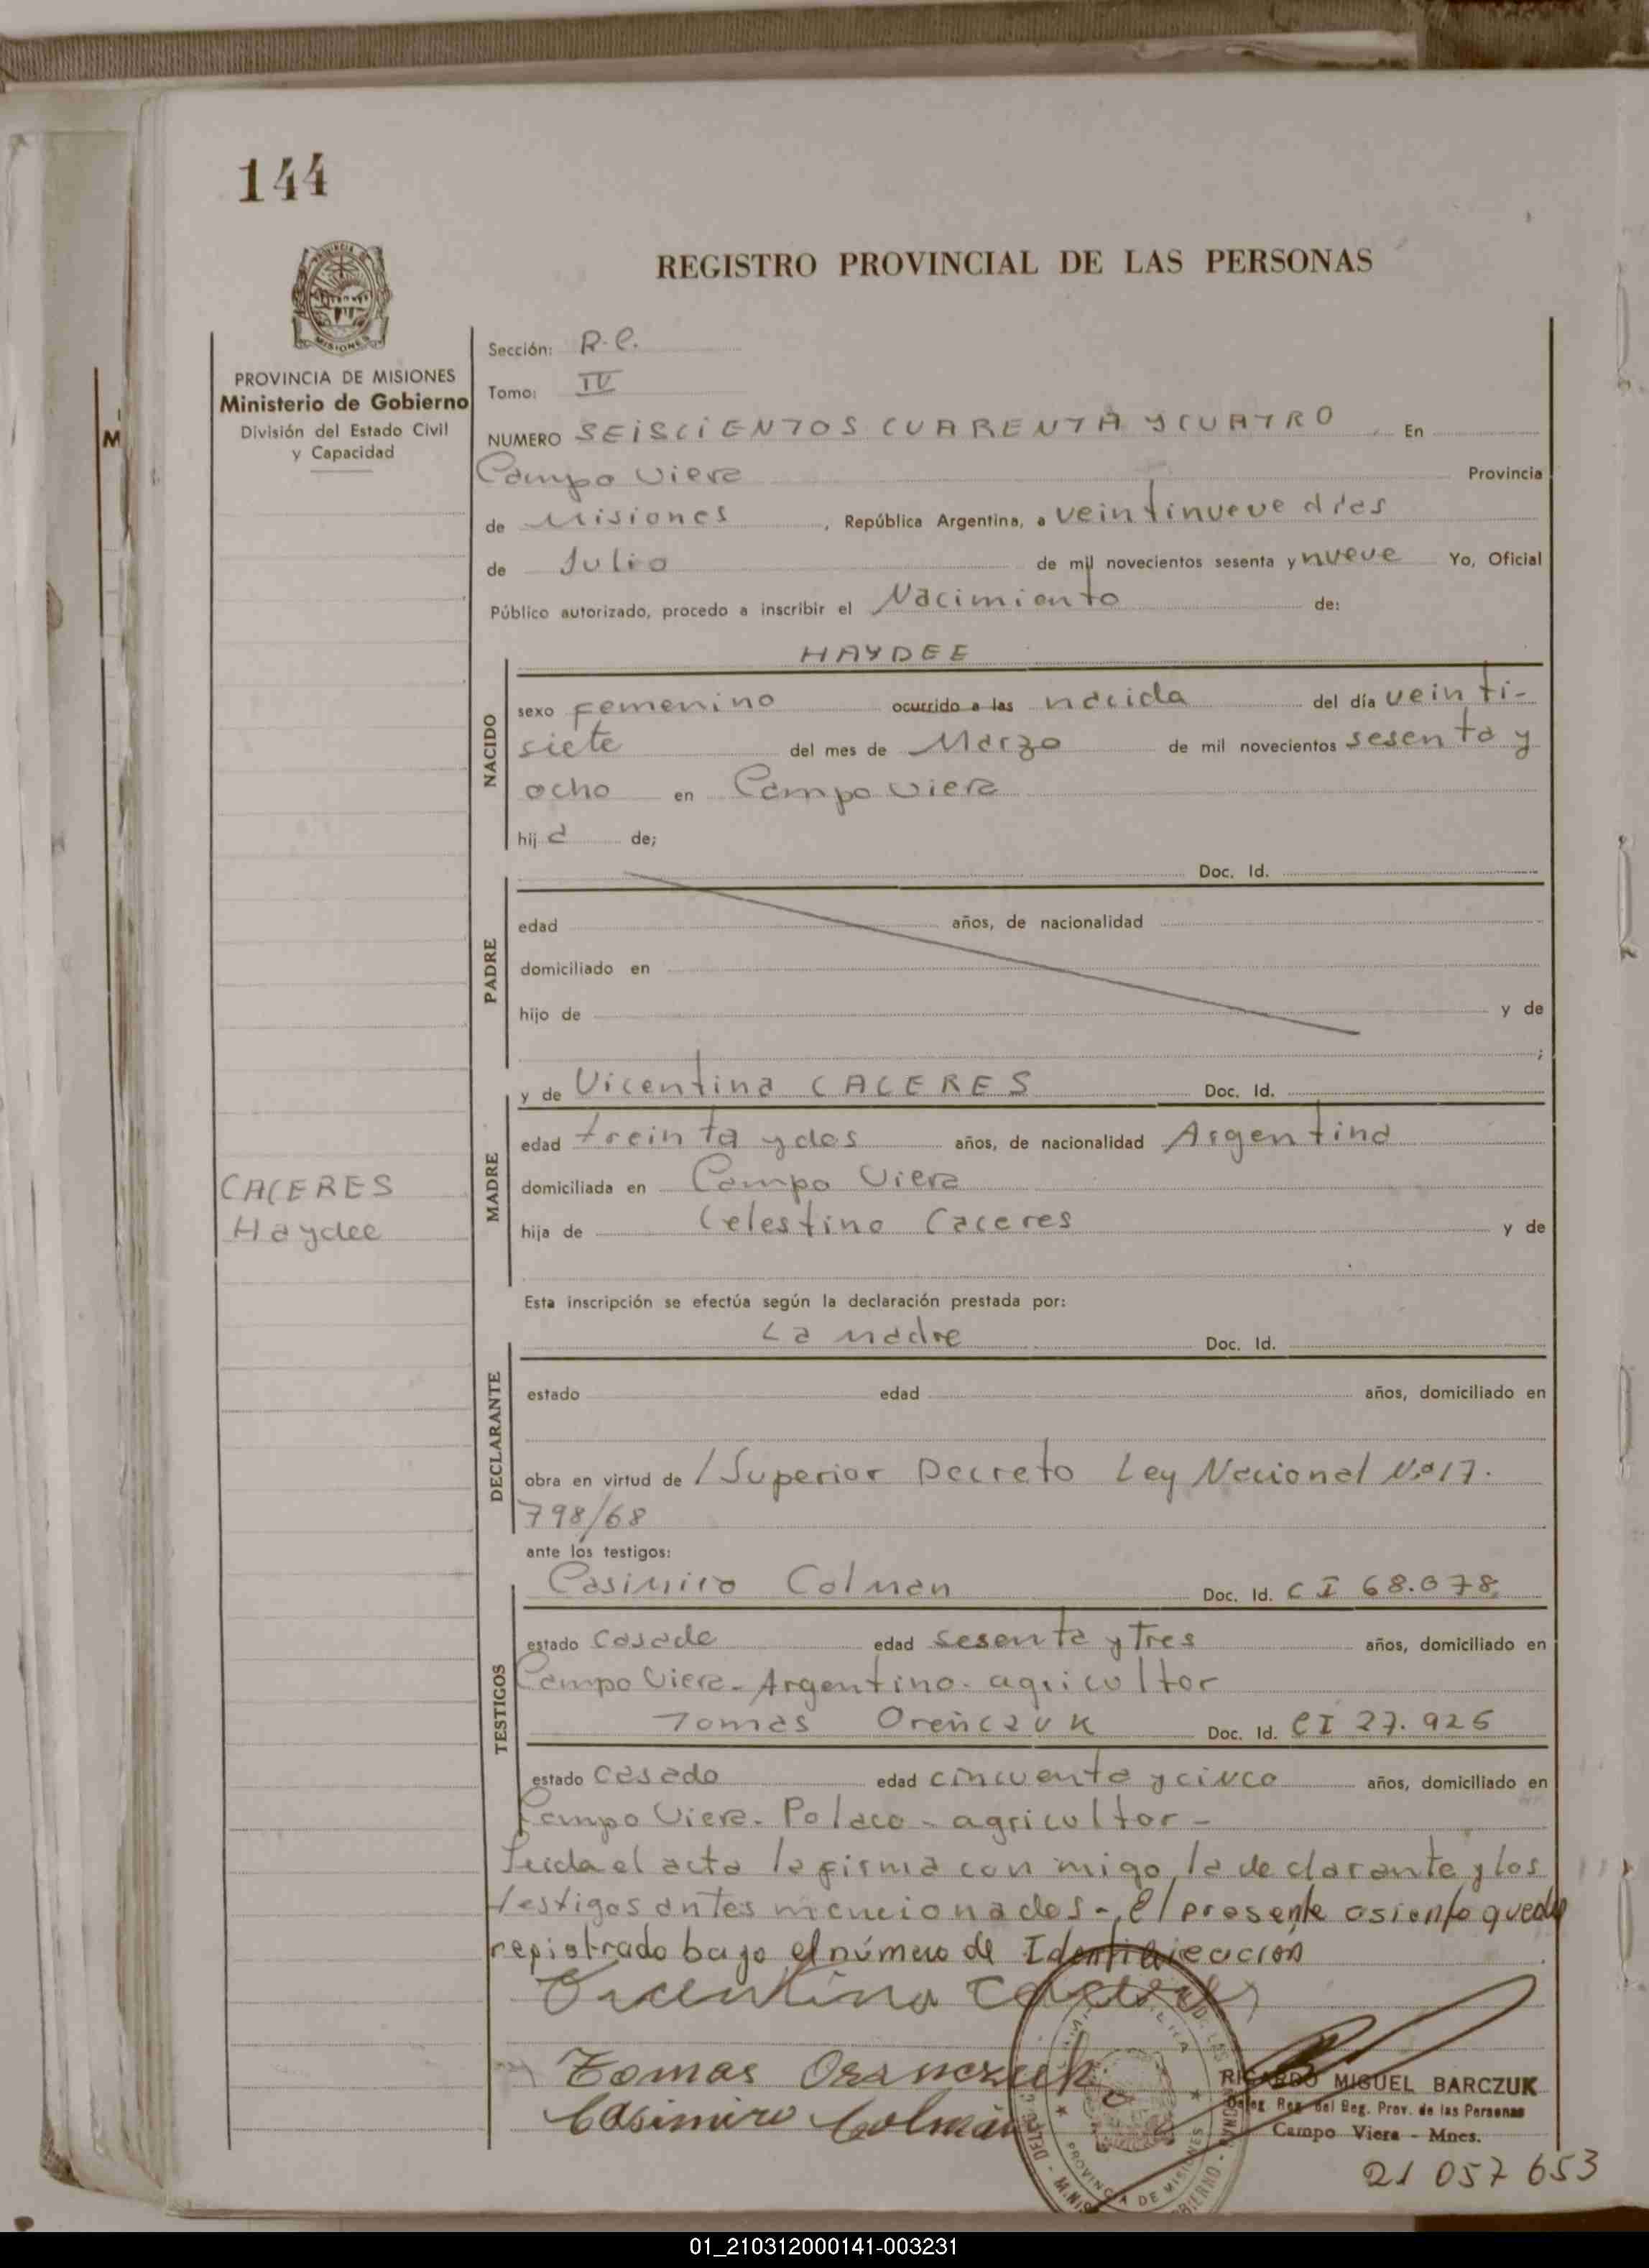 144
REGISTRO PROVINCIAL DE LAS PERSONAS
PROVINCIA DE MISIONES
Ministerio de Gobierno
División del Estado Civil
y Capacidad
Sección: R.C.
Tomo: IV
NUMERO SEISCIENTOS CUARENTA Y CUATRO En
Campo Viera Provincia
de Misiones, República Argentina, a veintinueve dies
de Julio de mil novecientos sesenta y nueve Yo, Oficial
Público autorizado, procedo a inscribir el Nacimiento de:
NACIDO
HAYDEE
sexo femenino ocurrido a las nacida del día veinti-
siete del mes de Marzo de mil novecientos sesenta y
ocho en Campo Viera
hija de;
PADRE
Doc. Id.
edad años, de nacionalidad
domiciliado en
hijo de y de
;
MADRE
y de Vicentina CACERES Doc. Id.
edad treinta y dos años, de nacionalidad Argentina
domiciliada en Campo Viera
hija de Celestino Caceres y de
CACERES
Haydee
Esta inscripción se efectúa según la declaración prestada por:
DECLARANTE
La madre Doc. Id.
estado edad años, domiciliado en
obra en virtud de / Superior Decreto Ley Nacional N.º 17.
798/68
ante los testigos:
TESTIGOS
Casimiro Colman Doc. Id. C I 68.078
estado casado edad sesenta y tres años, domiciliado en
Campo Viera. Argentino. agricultor
Tomas Oreñczuk Doc. Id. CI 27.926
estado casado edad cincuenta y cinco años, domiciliado en
Campo Viera. Polaco - agricultor -
Leida el acta la firma con migo, la declarante y los
testigos antes mencionados -, El presente asiento queda
registrado bajo el número de Identificacion
Vicentina Caceres
Tomas Oranczuk
Casimiro Colmán
RICARDO MIGUEL BARCZUK
Deleg. Reg. del Reg. Prov. de las Personas
Campo Viera - Mnes.
PROVINCIA DE MISIONES
21 057 653
01_210312000141-003231